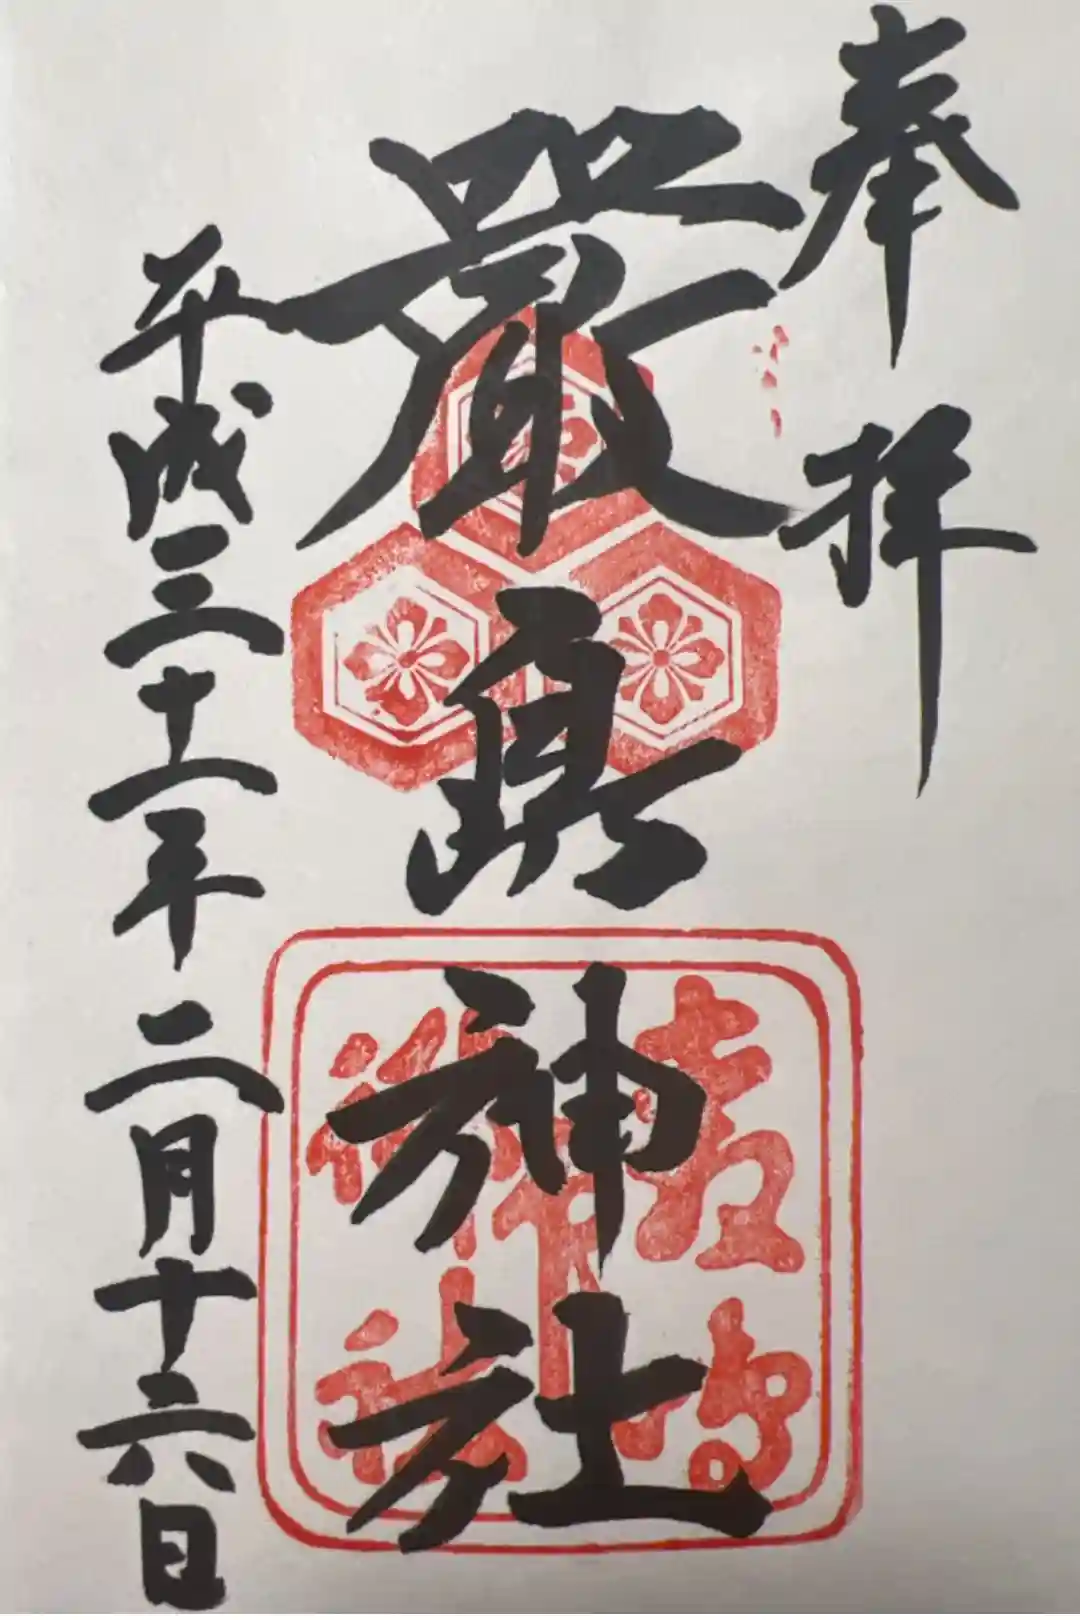 奉拝
嚴島神社
平成三十一年二月十六日